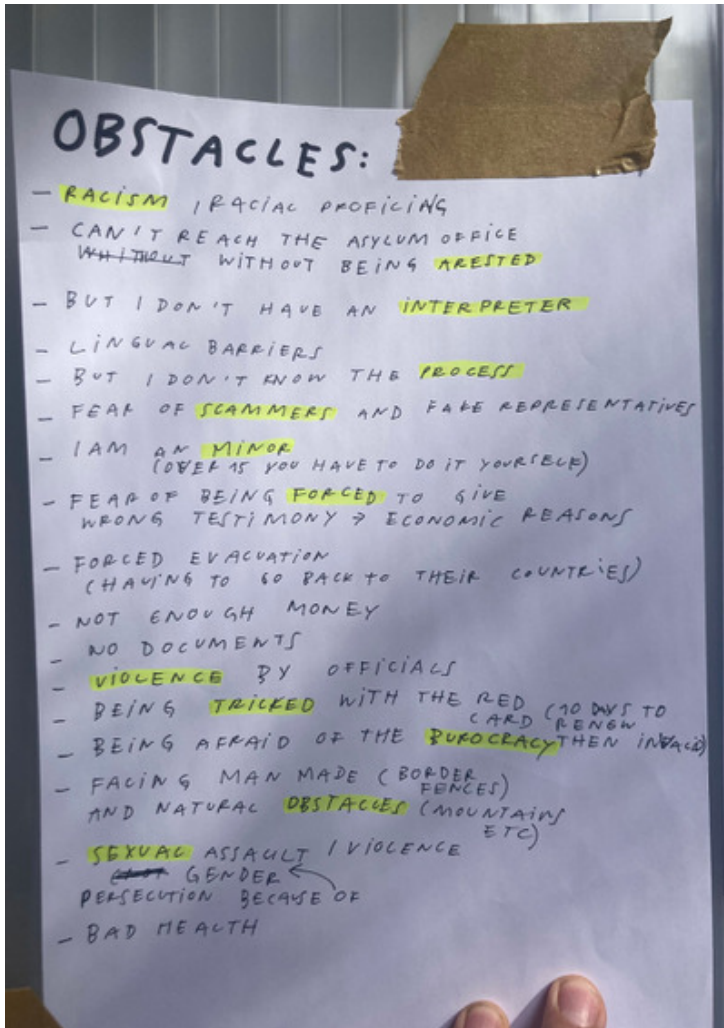 OBSTACLES:
- RACISM / RACIAL PROFICING
- CAN'T REACH THE ASYLUM OFFICE
WHITHOUT WITHOUT BEING ARESTED
- BUT I DON'T HAVE AN INTERPRETER
- LINGUAL BARRIERS
- BUT I DON'T KNOW THE PROCESS
- FEAR OF SCAMMERS AND FAKE REPRESENTATIVES
- I AM AN MINOR
(OVER 15 YOU HAVE TO DO IT YOURSELF)
- FEAR OF BEING FORCED TO GIVE
WRONG TESTIMONY → ECONOMIC REASONS
- FORCED EVACUATION
(HAVING TO GO BACK TO THEIR COUNTRIES)
- NOT ENOUGH MONEY
- NO DOCUMENTS
- VIOLENCE BY OFFICIALS
- BEING TRICKED WITH THE RED
CARD (10 DAYS TO
RENEW
THEN INVALID)
- BEING AFRAID OF THE BUROCRACY
- FACING MAN MADE (BORDER
FENCES)
AND NATURAL OBSTACLES (MOUNTAINS
ETC)
- SEXUAL ASSAULT / VIOLENCE
GENDER
PERSECUTION BECAUSE OF
- BAD HEALTH